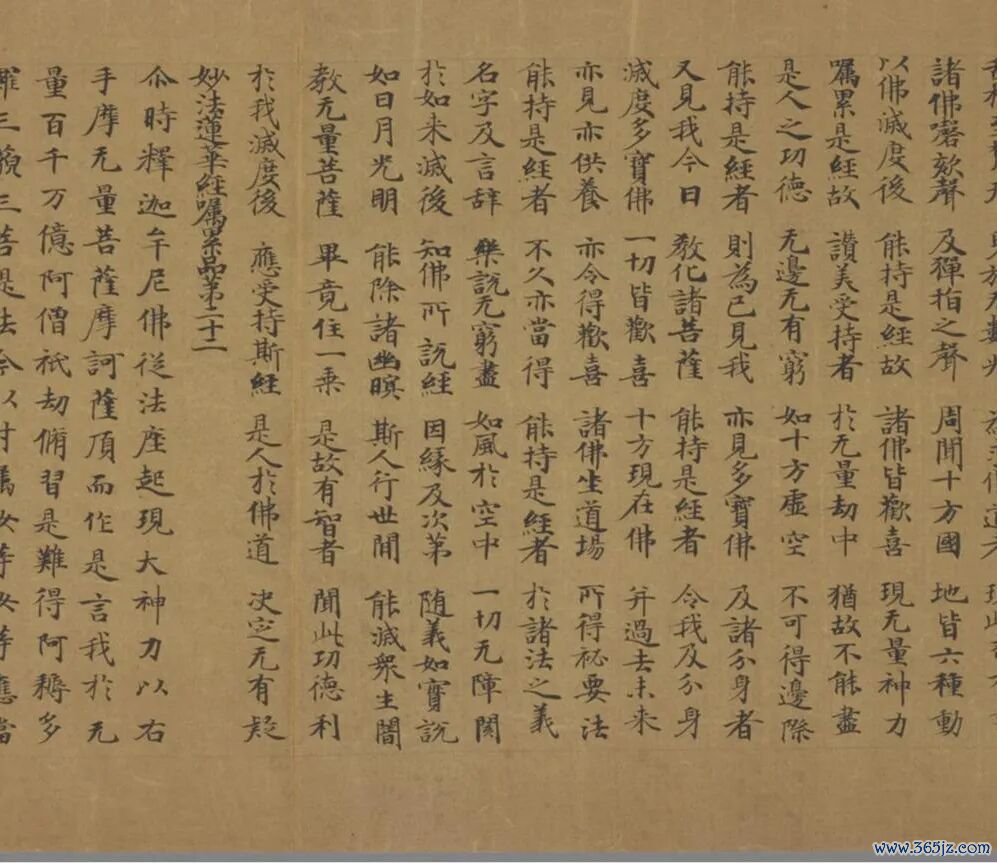 諸佛謦欬聲 及彈拍之聲 周聞十方國 地皆六種動
以佛滅度後 能持是經故 諸佛皆歡喜 現无量神力
囑累是經故 讚美受持者 於无量劫中 猶故不能盡
是人之功德 无邊无有窮 如十方虛空 不可得邊際
能持是經者 則為已見我 亦見多寶佛 及諸分身者
又見我今日 教化諸菩薩 能持是經者 令我及分身
滅度多寶佛 一切皆歡喜 十方現在佛 并過去未來
亦見亦供養 亦令得歡喜 諸佛坐道場 所得祕要法
能持是經者 不久亦當得 能持是經者 於諸法之義
名字及言辞 樂說无窮盡 如風於空中 一切无障閡
於如来滅後 知佛所說經 因緣及次第 随義如實說
如日月光明 能除諸幽瞑 斯人行世間 能滅衆生闇
教无量菩薩 畢竟住一乗 是故有智者 聞此功德利
於我滅度後 應受持斯經 是人於佛道 决定无有疑
妙法蓮華經囑累品第二十二
尒時釋迦牟尼佛從法座起現大神力以右
手摩无量菩薩摩訶薩頂而作是言我於无
量百千万億阿僧祇劫脩習是難得阿耨多
羅三藐三菩提法今以付囑汝等汝等應當
www.365jz.com